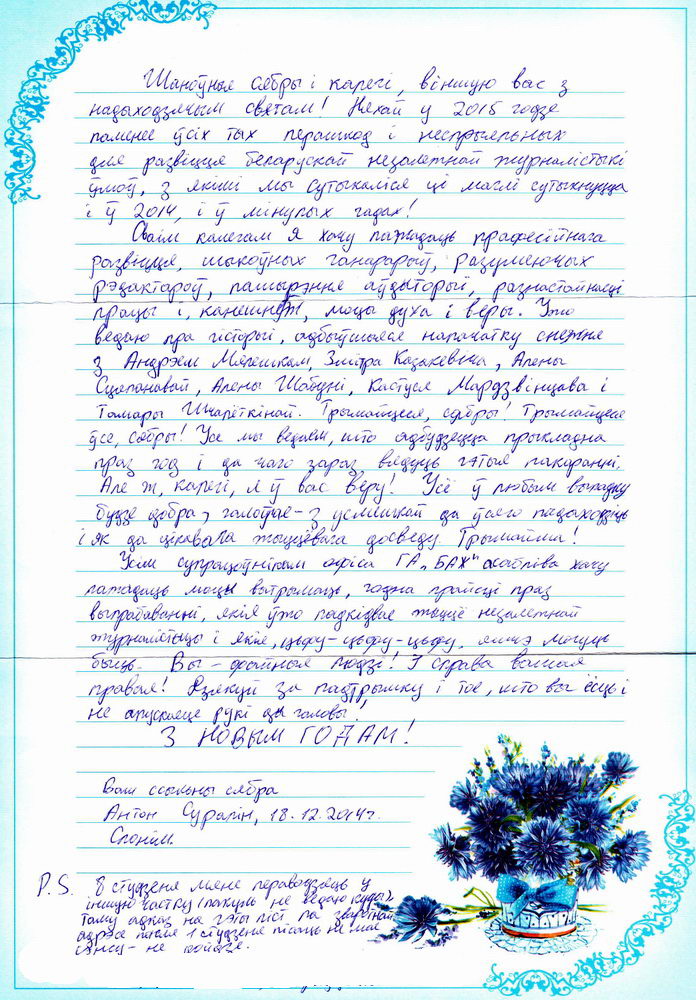 Шаноўныя сябры і калегі, віншую вас з
надыходзячым святам! Няхай у 2015 годзе
паменее ўсіх тых перашкод і неспрыяльных
для развіцця беларускай незалежнай журналістыкі
ўмоў, з якімі мы сутыкаліся ці маглі сутыкнуцца
і ў 2014, і ў мінулых гадах!
Сваім калегам я хачу пажадаць прафесійнага
развіцця, шыкоўных ганарараў, разумеючых
рэдактараў, пашырэння аўдыторыі, разнастайнасці
працы і, канешне ж, моцы духа і веры. Ужо
ведаю пра гісторыі, адбыўшыеся напачатку снежня
з Андрэем Мялешкам, Зміtра Казакевіча, Алены
Сцяпанавай, Алены Шабуні, Кастуся Мардзвінцава і
Тамары Шчапёткінай. Трымайцеся, сябры! Трымайцеся
ўсе, сябры! Усе мы ведаем, што адбудзецца прыкладна
праз год і да чаго зараз вядуць гэтыя пакаранні.
Але ж, калегі, я ў вас веру! Усё ў любым выпадку
будзе добра, галоўнае - з усмешкай да ўсяго падыходзіць
і як да цікавага жыццёвага досведу. Трымайма!
Усім супрацоўнікам офіса ГА „БАЖ" асабліва хачу
пажадаць моцы вытрымаць, годна прайсці праз
выпрабаванні, якія ўжо падкідвае жыццё незалежнай
журналістыцы і якія, цьфу-цьфу-цьфу, яшчэ могуць
быць. Вы - файныя людзі! І справа вашая
правая! Дзякуй за падтрымку і тое, што вы ёсць і
не апускаеце рукі ды галовы!
З НОВЫМ ГОДАМ!
Ваш ссыльны сябра
Антон Сурапін, 18.12.2014 г.
Слонім.
P.S. В студзеня мяне пераводзяць у
іншую частку (пакуль не ведаю куды),
таму адказ на гэты ліст па зваротнай
адрасе пасля 1 студзеня пісаць не мае
сэнсу - не дойдзе.